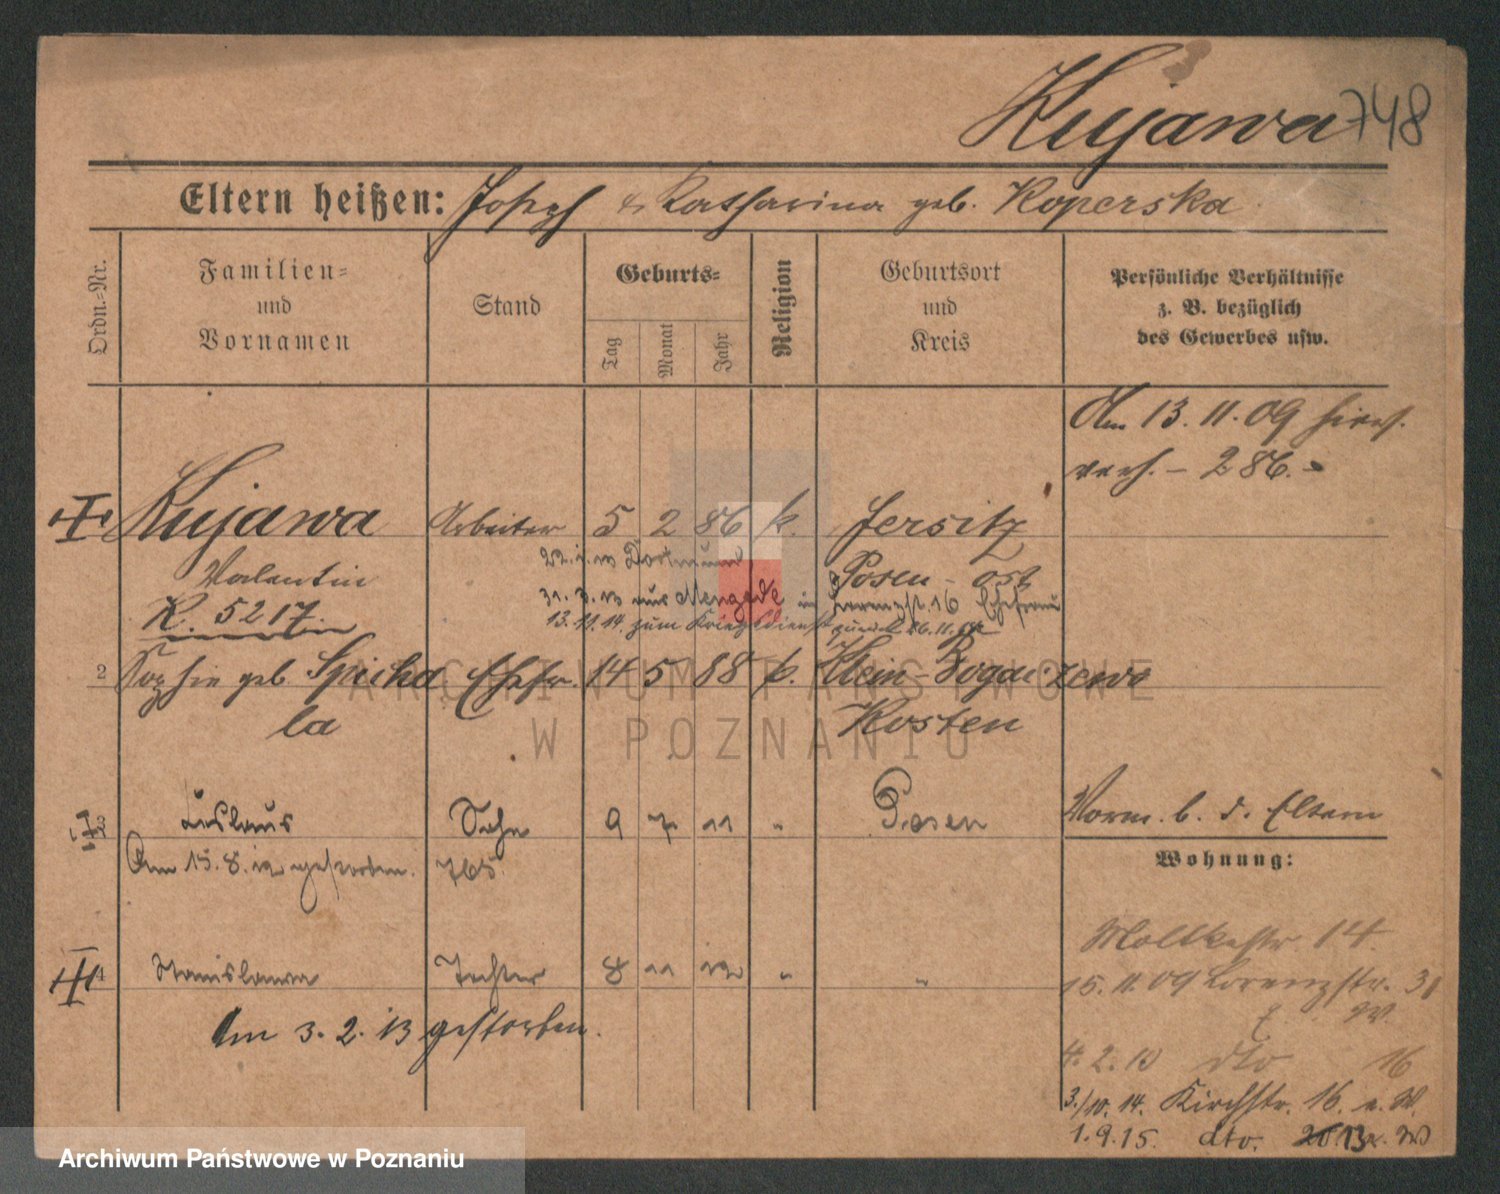 Kujawa 748
Eltern heißen: Joseph & Katharina geb. Koperska
Ordn.-Nr.
Familien-
und
Vornamen
Stand
Geburts-
Tag
Monat
Jahr
Religion
Geburtsort
und
Kreis
Persönliche Verhältnisse
z. B. bezüglich
des Gewerbes usw.
Am 13. 11. 09 hiers.
verh. - 286.
Kujawa Arbeiter 5 2 86 k. Jersitz
Valentin Posen - Ost
22. 1. 13 Dortmund
K. 5217
31. 3. 13 aus Mengede in 16 Ehefrau
13. 11. 14. zum Kriegsdienst
2 Sophie geb. Spicha Ehefr. 14 5 88 k. Klein-Bogaczewo
la Kosten
3 Sohn 9 7 11 " Posen Vorm. b. d. Eltern
Am 15. 8. 12 gestorben. 765
Wohnung:
Moltkestr. 14.
4 Stanislawa Tochter 8 11 12 " "
15. 11. 09 Lorenzstr. 31
Am 3. 2. 13 gestorben.
4. 2. 10 dto 16
3./10. 14. Kirchstr. 16. a. W.
1. 9. 15. dto. 13
ARCHIWUM PAŃSTWOWE
W POZNANIU
Archiwum Państwowe w Poznaniu